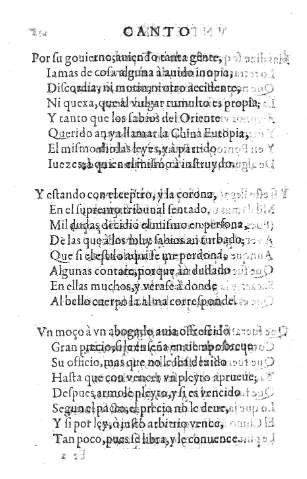 CANTO
Por su gouierno, auiendo tanta gente,
Iamas de cosa alguna à auido inopia,
Discordia, ni motin, ni otro accidente,
Ni quexa, que al vulgar tumulto es propia,
Y tanto que los sabios del Oriente
Querido an ya llamar la China Eutopia,
El mismo dio las leyes, y à partido
Iuezes, à quien el mismo à instruydo.
Y estando con el ceptro, y la corona,
En el supremo tribunal sentado,
Mil dudas decidio el mismo en persona,
De las que à los muy sabios an turbado,
Que si el estilo aqui se me perdona,
Algunas contarè, porque an dudado
En ellas muchos, y verase à donde
Al bello cuerpo la alma corresponde.
Vn moço à vn abogado auia ofrescido
Gran precio, si le enseña en tiempo
Su officio, mas que no le sea deuido
Hasta que con vencer vn pleyto aprueue,
Despues armole pleyto, y si es vencido
Segun el pacto, el precio nò le deue,
Y si por ley, ò justo arbitrio vence,
Tan poco, pues se libra, y le conuence.